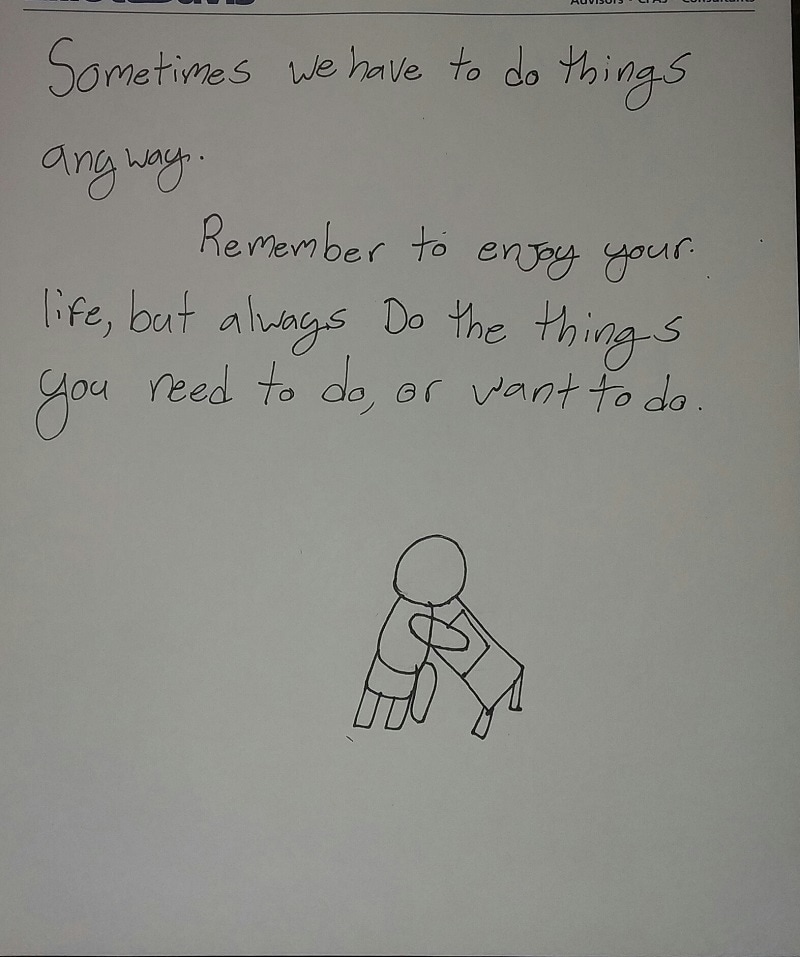 Advisors • CPAs • Consultants
Sometimes we have to do things
anyway.
Remember to enjoy your
life, but always Do the things
you need to do, or want to do.